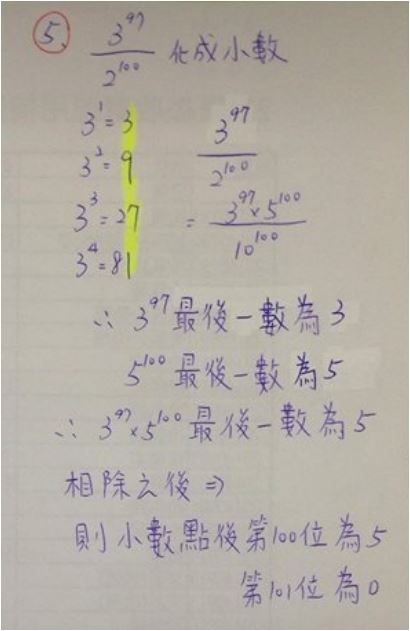 5、 3^97/2^100 化成小數
3^1=3
3^2=9 3^97/2^100
3^3=27 = 3^97×5^100/10^100
3^4=81
∴ 3^97最後一數為3
5^100最後一數為5
∴ 3^97×5^100最後一數為5
相除之後⇒
則小數點後第100位為5
第101位為0